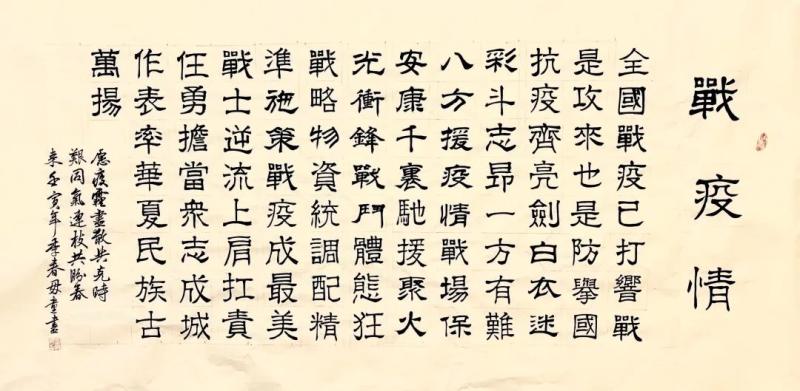 戰疫情
全國戰疫已打響戰
是攻來也是防舉國
抗疫齊亮劍白衣迷
彩斗志昂一方有難
八方援疫情戰場保
安康千裏馳援聚火
光衝鋒戰鬥體態狂
戰略物資統調配精
準施策戰疫成最美
戰士逆流上肩扛責
任勇擔當衆志成城
作表率華夏民族古
萬揚
愿疫霾盡散共克時
艱同氣連枝共盼春
来壬寅年季春書